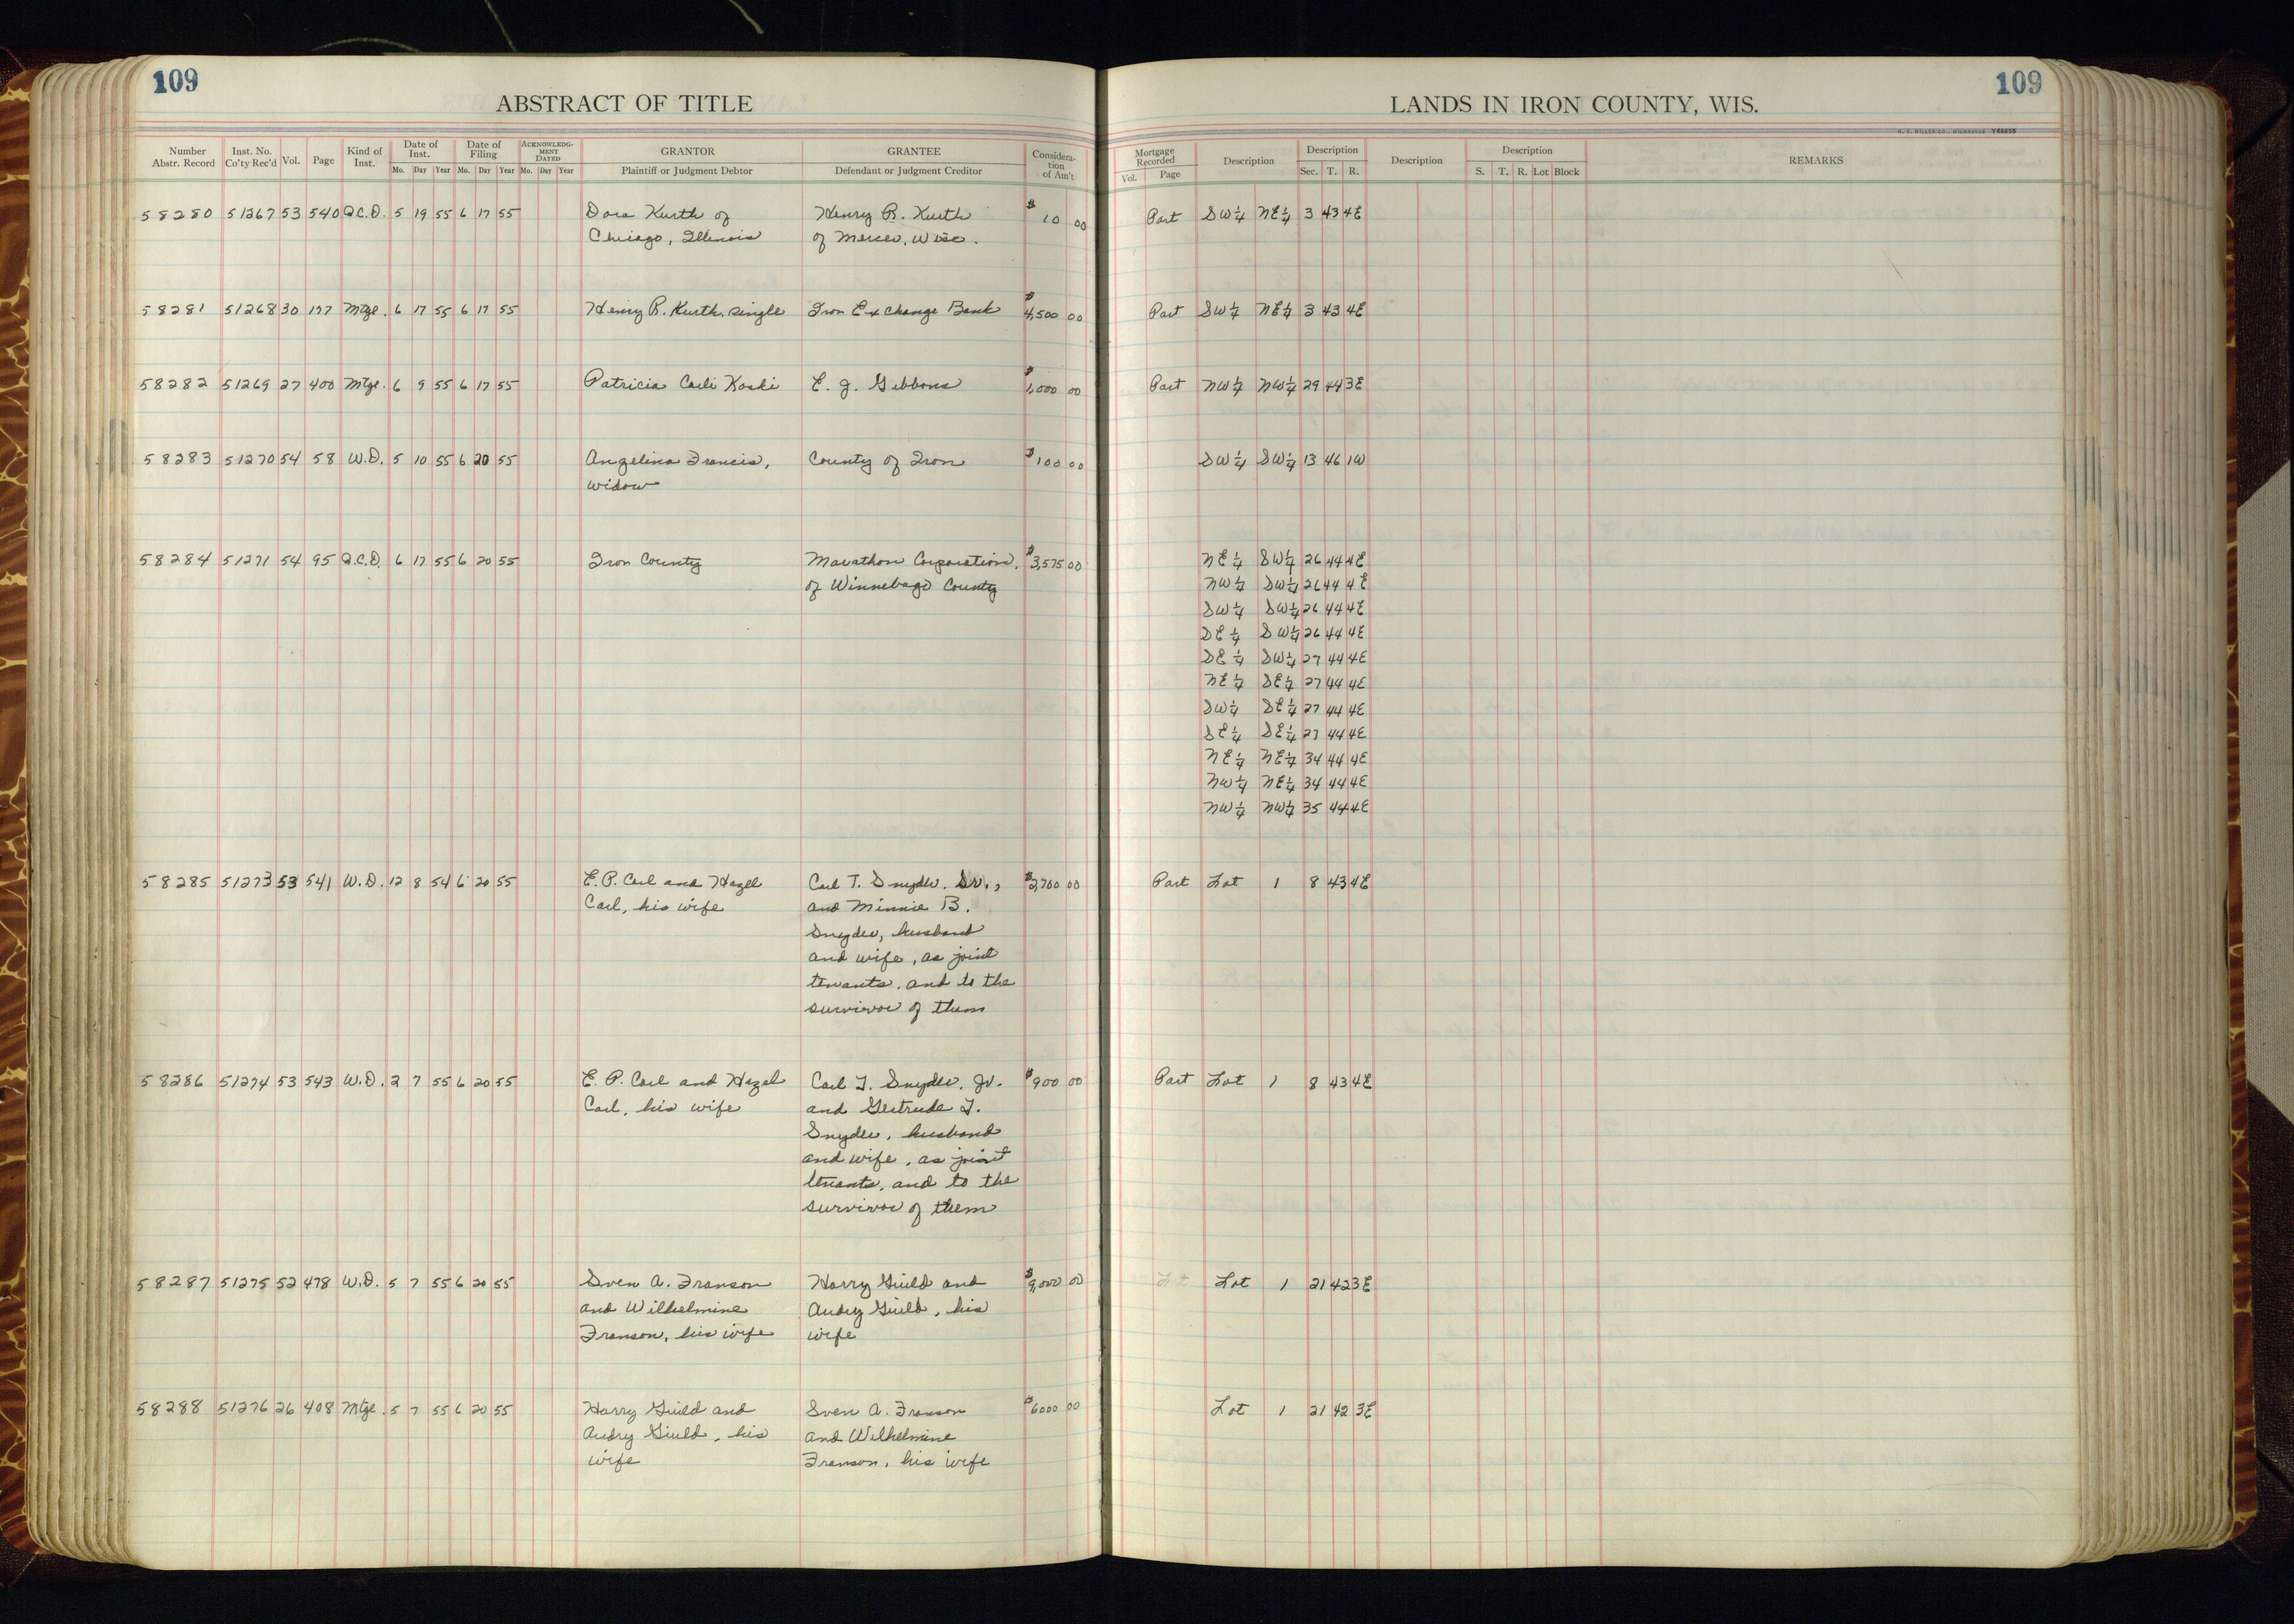 109
ABSTRACT OF TITLE
Number Abstr. Record Inst. No. Co'ty Rec'd Vol. Page Kind of Inst. Date of Inst. Mo. Day Year Date of Filing Mo. Day Year ACKNOWLEDG-MENT DATED Mo. Day Year GRANTOR Plaintiff or Judgment Debtor GRANTEE Defendant or Judgment Creditor Considera-tion of Am't
58280 51267 53 540 Q.C.D. 5 19 55 6 17 55 Dora Kurth of Henry R. Kurth $10 00
Chicago, Illinois of Mercer, Wisc.
58281 51268 30 177 Mtge. 6 17 55 6 17 55 Henry R. Kurth, single Iron Exchange Bank $4,500 00
58282 51269 27 400 Mtge. 6 9 55 6 17 55 Patricia Carli Koski E. J. Gibbons $1,000 00
58283 51270 54 58 W.D. 5 10 55 6 20 55 Angelina Francis, County of Iron $100 00
widow
58284 51271 54 95 Q.C.D. 6 17 55 6 20 55 Iron County Marathon Corporation, $3,575 00
of Winnebago County
58285 51273 53 541 W.D. 12 8 54 6 20 55 E. P. Carl and Hazel Carl T. Snyder, Sr., $2,700 00
Carl, his wife and Minnie B.
Snyder, husband
and wife, as joint
tenants, and to the
survivor of them
58286 51274 53 543 W.D. 2 7 55 6 20 55 E. P. Carl and Hazel Carl T. Snyder, Jr. $900 00
Carl, his wife and Gertrude T.
Snyder, husband
and wife, as joint
tenants, and to the
survivor of them
58287 51275 52 478 W.D. 5 7 55 6 20 55 Sven A. Franson Harry Guild and $9,000 00
and Wilhelmine Audry Guild, his
Franson, his wife wife
58288 51276 26 408 Mtge. 5 7 55 6 20 55 Harry Guild and Sven A. Franson $6000 00
Audry Guild, his and Wilhelmine
wife Franson, his wife
109
LANDS IN IRON COUNTY, WIS.
H. C. MILLER CO., MILWAUKEE
Mortgage Recorded Vol. Page Description Description Sec. T. R. Description Description S. T. R. Lot Block REMARKS
Part SW¼ NE¼ 3 43 4E
Part SW¼ NE¼ 3 43 4E
Part NW¼ NW¼ 29 44 3E
SW¼ SW¼ 13 46 1W
NE¼ SW¼ 26 44 4E
NW¼ SW¼ 26 44 4E
SW¼ SW¼ 26 44 4E
SE¼ SW¼ 26 44 4E
SE¼ SW¼ 27 44 4E
NE¼ SE¼ 27 44 4E
SW¼ SE¼ 27 44 4E
SE¼ SE¼ 27 44 4E
NE¼ NE¼ 34 44 4E
NW¼ NE¼ 34 44 4E
NW¼ NW¼ 35 44 4E
Part Lot 1 8 43 4E
Part Lot 1 8 43 4E
Lot 1 21 42 3E
Lot 1 21 42 3E